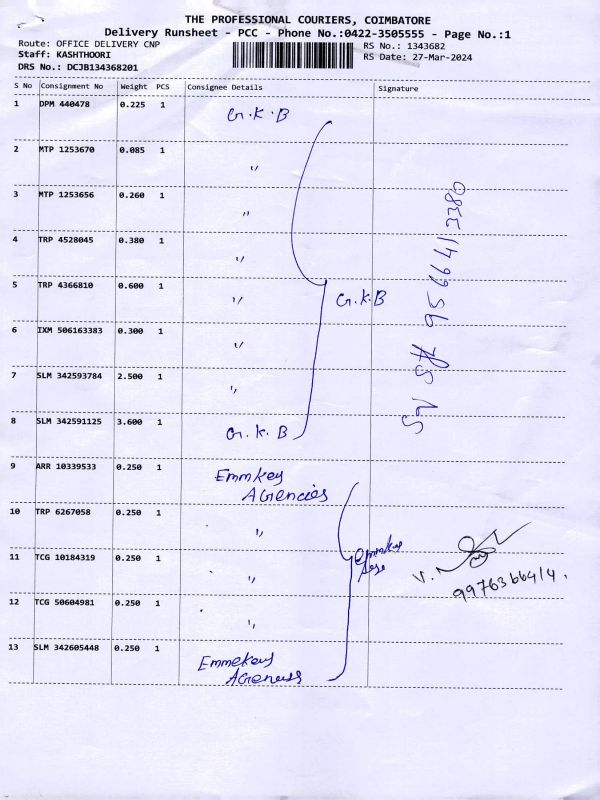 THE PROFESSIONAL COURIERS, COIMBATORE
Delivery Runsheet - PCC - Phone No.:0422-3505555 - Page No.:1
Route: OFFICE DELIVERY CNP
RS No.: 1343682
Staff: KASHTHOORI
RS Date: 27-Mar-2024
DRS No.: DCJB134368201
S No Consignment No Weight PCS Consignee Details Signature
1 DPM 440478 0.225 1 G.K.B
2 MTP 1253670 0.085 1 "
3 MTP 1253656 0.260 1 "
4 TRP 4528045 0.380 1 "
5 TRP 4366810 0.600 1 " G.K.B
6 IXM 506163383 0.300 1 "
7 SLM 342593784 2.500 1 "
8 SLM 342591125 3.600 1 G.K.B
9566413380
9 ARR 10339533 0.250 1 Emmkey
Agencies
10 TRP 6267058 0.250 1 "
11 TCG 10184319 0.250 1 " Emmkey
12 TCG 50604981 0.250 1 "
13 SLM 342605448 0.250 1 Emmekey